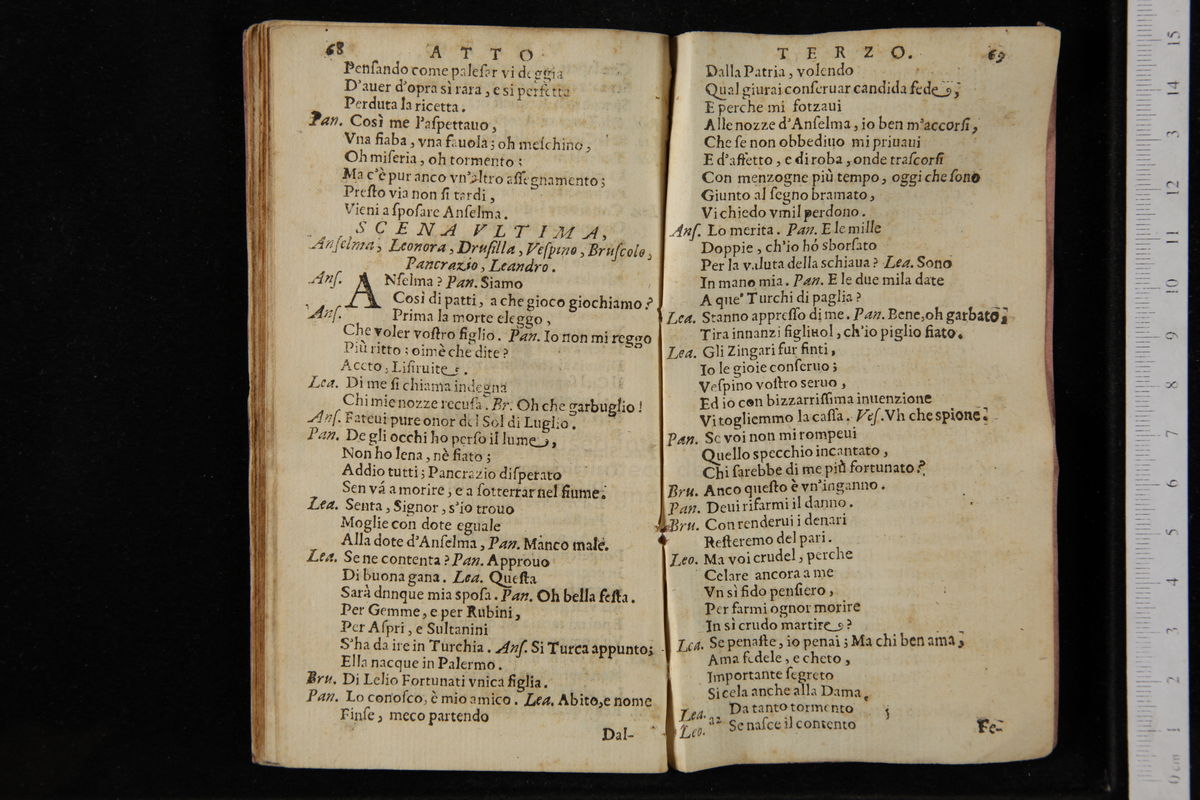 68 ATTO
Penſando come paleſar vi deggia
D'auer d'opra sì rara, e si perfetta
Perduta la ricetta.
Pan. Così me l'aſpettauo,
Vna fiaba, vna fauola; oh meſchino,
Oh miſeria, oh tormento:
Ma c'è pur anco vn'altro aſſegnamento;
Preſto via non ſi tardi,
Vieni a ſpoſare Anſelma.
SCENA VLTIMA,
Anſelma, Leonora, Druſilla, Veſpino, Bruſcolo,
Pancrazio, Leandro.
Anſ. ANſelma? Pan. Siamo
Così di patti, a che gioco giochiamo?
Anſ. Prima la morte eleggo,
Che voler voſtro figlio. Pan. Io non mi reggo
Più ritto: oimè che dite?
Aceto, Liſiruite.
Lea. Di me ſi chiama indegna
Chi mie nozze recuſa. Br. Oh che garbuglio!
Anſ. Fateui pure onor del Sol di Luglio.
Pan. De gli occhi ho perſo il lume,
Non ho lena, nè fiato;
Addio tutti; Pancrazio diſperato
Sen vá a morire, e a ſotterrar nel fiume.
Lea. Senta, Signor, s'io trouo
Moglie con dote eguale
Alla dote d'Anſelma, Pan. Manco male.
Lea. Se ne contenta? Pan. Approuo
Di buona gana. Lea. Queſta
Sarà dnnque mia spoſa. Pan. Oh bella feſta.
Per Gemme, e per Rubini,
Per Aſpri, e Sultanini
S'ha da ire in Turchia. Anſ. Si Turca appunto;
Ella nacque in Palermo.
Bru. Di Lelio Fortunati vnica figlia.
Pan. Lo conoſco, è mio amico. Lea. Abito, e nome
Finſe, meco partendo
Dal-
TERZO. 69
Dalla Patria, volendo
Qual giurai conſeruar candida fede;
E perche mi fotzaui
Alle nozze d'Anſelma, io ben m'accorſi,
Che ſe non obbediuo mi priuaui
E d'affetto, e di roba, onde traſcorſi
Con menzogne più tempo, oggi che ſono
Giunto al ſegno bramato,
Vi chiedo vmil perdono.
Anſ. Lo merita. Pan. E le mille
Doppie, ch'io hó sborſato
Per la valuta della schiaua? Lea. Sono
In mano mia. Pan. E le due mila date
A que' Turchi di paglia?
Lea. Stanno appreſſo di me. Pan. Bene, oh garbato;
Tira innanzi figliuol, ch'io piglio fiato.
Lea. Gli Zingari fur finti,
Io le gioie conſeruo;
Veſpino voſtro seruo,
Ed io con bizzarriſſima inuenzione
Vi togliemmo la caſſa. Veſ. Vh che spione.
Pan. Se voi non mi rompeui
Quello specchio incantato,
Chi ſarebbe di me più fortunato?
Bru. Anco queſto è vn'inganno.
Pan. Deui rifarmi il danno.
Bru. Con renderui i denari
Reſteremo del pari.
Leo. Ma voi crudel, perche
Celare ancora a me
Vn sì fido penſiero,
Per farmi ognor morire
In sì crudo martire?
Lea. Se penaſte, io penai; Ma chi ben ama,
Ama fedele, e cheto,
Importante ſegreto
Si cela anche alla Dama,
Lea. Da tanto tormento
Leo. a2 Se naſce il contento
Fe-